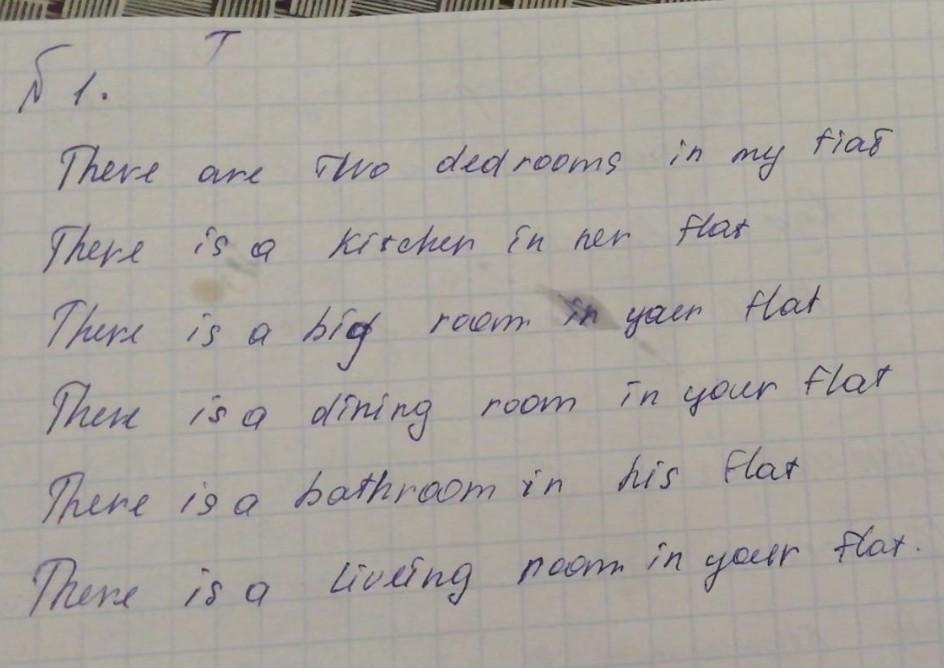 T
№ 1.
There are two dedrooms in my fiat
There is a kitchen in her flat
There is a big room in your flat
There is a dining room in your flat
There is a bathroom in his flat
There is a liveing room in your flat.